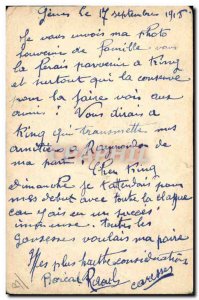 Gênes le 17 septembre 1915
Je vous envois ma photo
souvenir de famille vous
la ferais parvenir a King
et surtout qu'il la conserve
pour la faire voir aux
amis! Vous dirais a
King qui transmette mes
amitiés a Raymondos de
ma part! Cher King
dimanche je t'attendais pour
mes debut avec toute la claque
car j'ais eu un succès!
immense. toutes les
gonzesses voulais ma paire
Mes plus haute considération
caresses